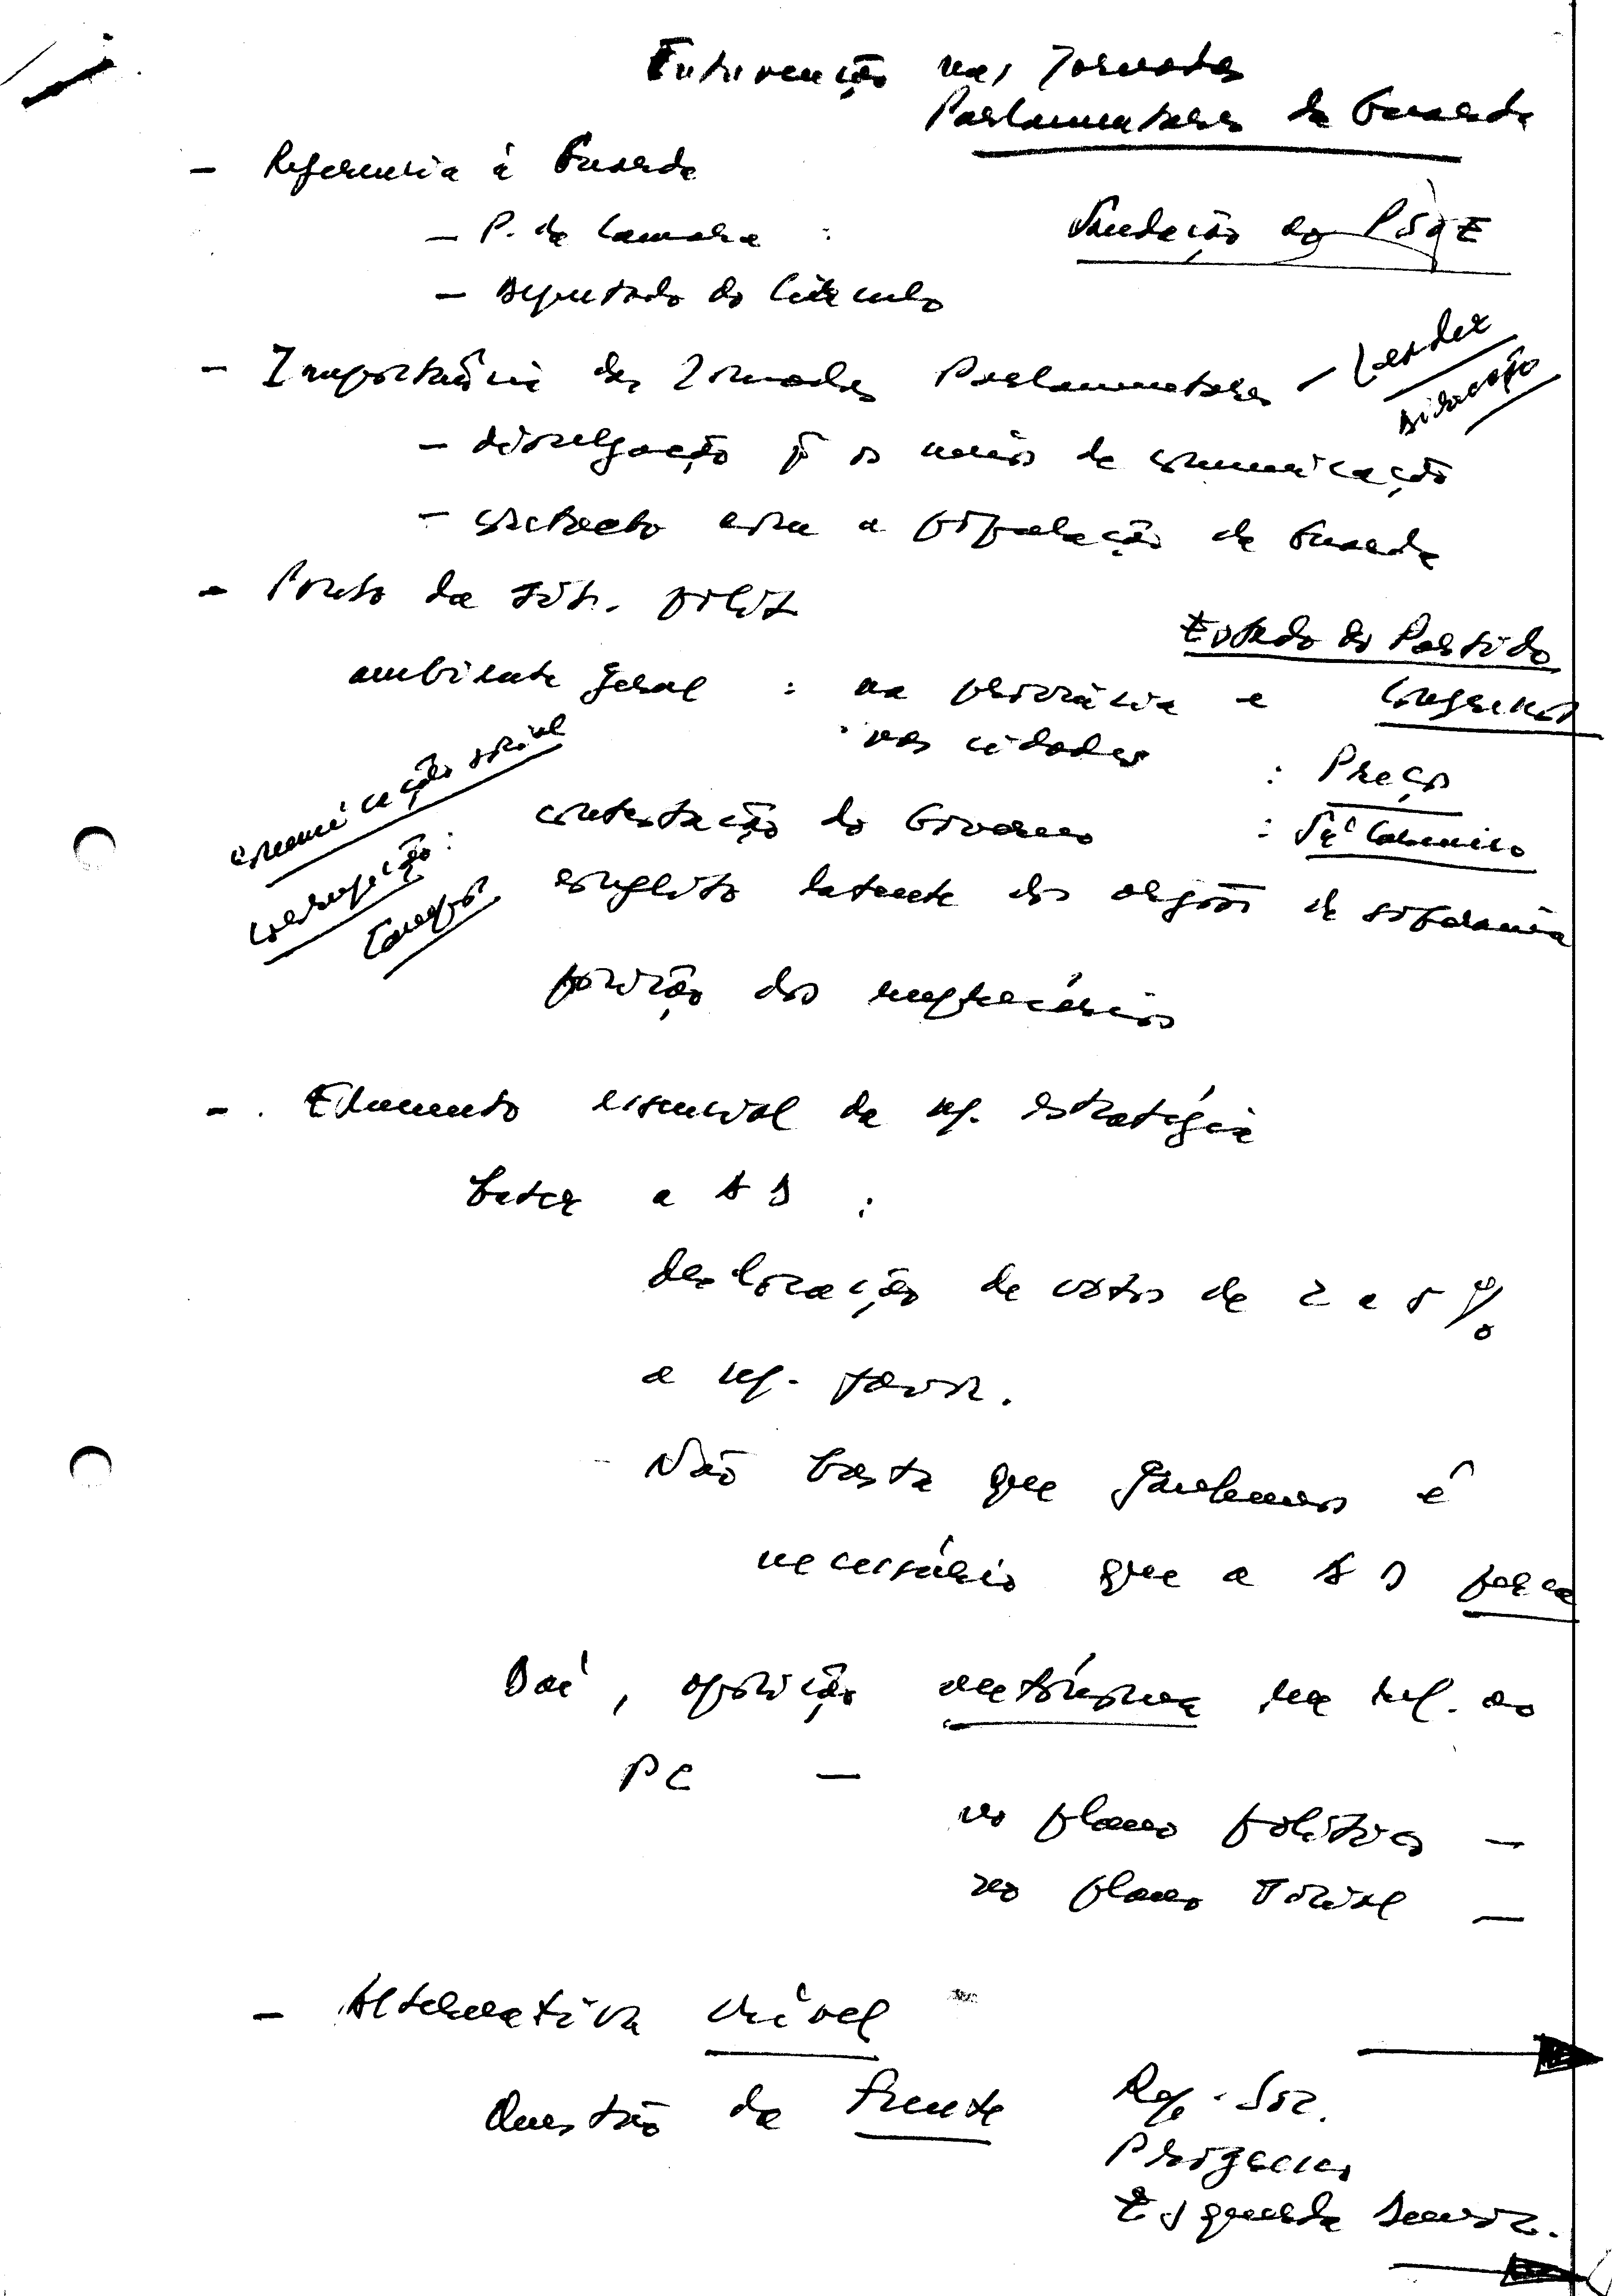 Intervenção nas Jornadas
Parlamentares da Guarda
- Referencia à Guarda
- P. da Camara :
Saudação ao PSOE
- Deputado do Circulo
- Importância das Jornadas Parlamentares - Leader
direcção
- divulgação p os meios de comunicação
- contacto com a população da Guarda
- Ponto da sit. polit
Estado do Partido
ambiente geral : na província e Congresso
: nas cidades
: Preços
comunicação social
contestação do Governo
corrupção :
conflito latente dos orgãos de soberania
posição dos empresários
- . Elemento essencial da ns. estratégia
bater a AD :
deslocação de votos de 2 a 5 %
a ns. favor.
- Não basta que ganhemos é
necessário que a AD perca
Daí, oposição autónoma em rel. ao
PC -
no plano político -
no plano social -
- Alternativa crível
Questão da Frente
Rep. Soc.
Progress
Esquerda Democ.